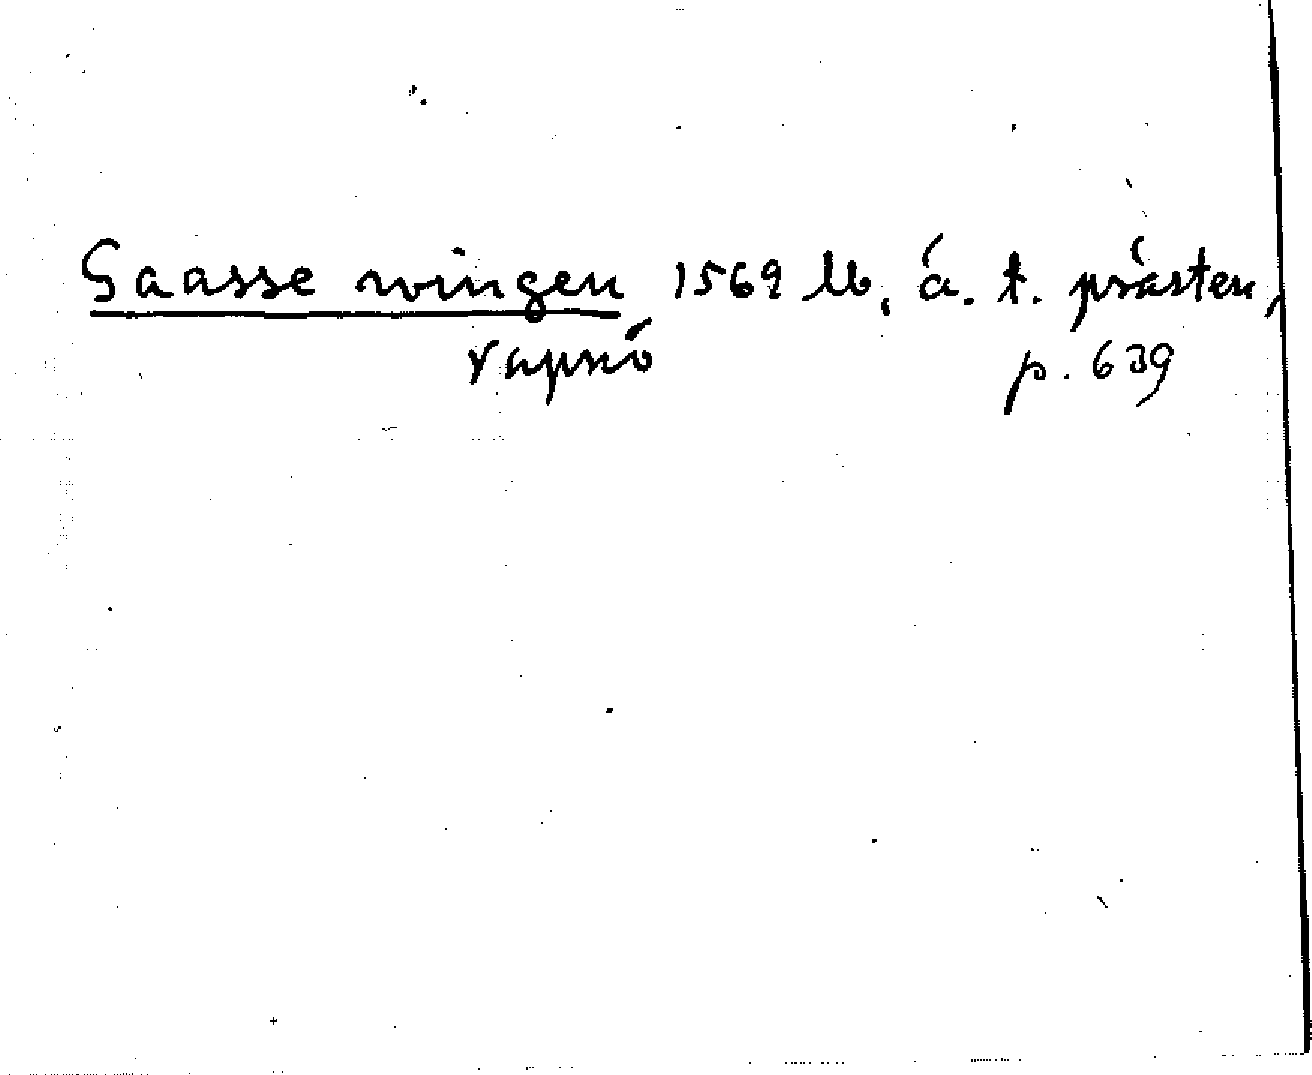 Gaasse wingen 1569 lb, ä. t. prästen,
Rapsö p. 639